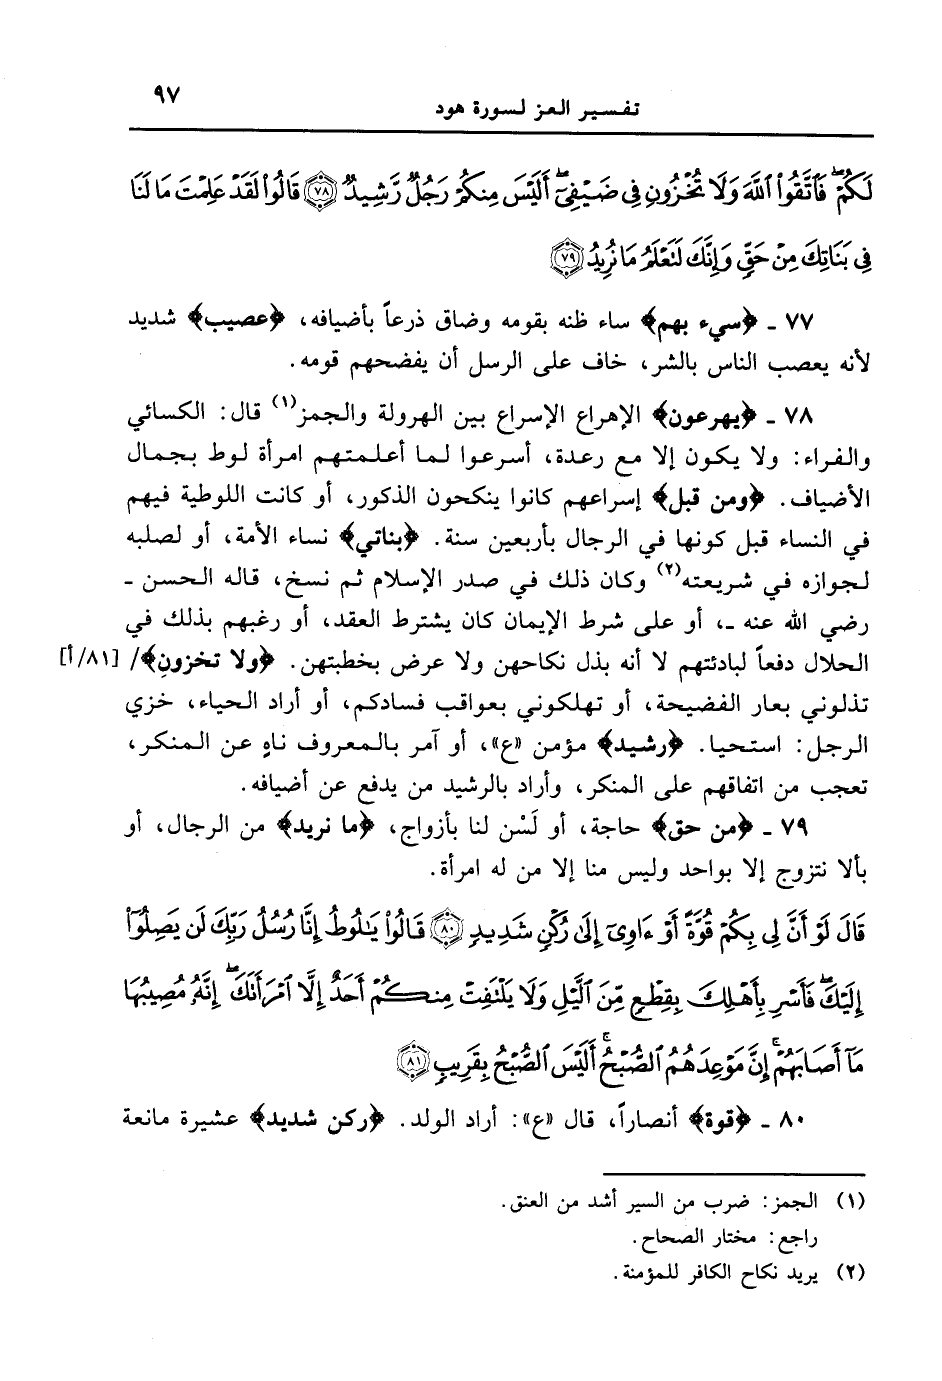 تفسير العز لسورة هود ٩٧
لَكُمْ ۖ فَاتَّقُوا۟ اللَّهَ وَلَا تُخْزُونِ فِى ضَيْفِىٓ ۖ أَلَيْسَ مِنكُمْ رَجُلٌ رَّشِيدٌ ٧٨ قَالُوا۟ لَقَدْ عَلِمْتَ مَا لَنَا
فِى بَنَاتِكَ مِنْ حَقٍّ وَإِنَّكَ لَتَعْلَمُ مَا نُرِيدُ ٧٩
٧٧ ـ ﴿سيء بهم﴾ ساء ظنه بقومه وضاق ذرعاً بأضيافه، ﴿عصيب﴾ شديد
لأنه يعصب الناس بالشر، خاف على الرسل أن يفضحهم قومه.
٧٨ ـ ﴿يهرعون﴾ الإهراع الإسراع بين الهرولة والجمز(١) قال: الكسائي
والفراء: ولا يكون إلا مع رعدة، أسرعوا لما أعلمتهم امرأة لوط بجمال
الأضياف. ﴿ومن قبل﴾ إسراعهم كانوا ينكحون الذكور، أو كانت اللوطية فيهم
في النساء قبل كونها في الرجال بأربعين سنة. ﴿بناتي﴾ نساء الأمة، أو لصلبه
لجوازه في شريعته(٢) وكان ذلك في صدر الإسلام ثم نسخ، قاله الحسن ـ
رضي الله عنه ـ، أو على شرط الإيمان كان يشترط العقد، أو رغبهم بذلك في
الحلال دفعاً لبادئتهم لا أنه بذل نكاحهن ولا عرض بخطبتهن. ﴿ولا تخزونِ﴾/ [٨١/أ]
تذلوني بعار الفضيحة، أو تهلكوني بعواقب فسادكم، أو أراد الحياء، خزي
الرجل: استحيا. ﴿رشيد﴾ مؤمن «ع»، أو آمر بالمعروف ناهٍ عن المنكر،
تعجب من اتفاقهم على المنكر، وأراد بالرشيد من يدفع عن أضيافه.
٧٩ ـ ﴿من حق﴾ حاجة، أو لَسْن لنا بأزواج، ﴿ما نريد﴾ من الرجال، أو
بألا نتزوج إلا بواحد وليس منا إلا من له امرأة.
قَالَ لَوْ أَنَّ لِى بِكُمْ قُوَّةً أَوْ ءَاوِىٓ إِلَىٰ رُكْنٍ شَدِيدٍ ٨٠ قَالُوا۟ يَٰلُوطُ إِنَّا رُسُلُ رَبِّكَ لَن يَصِلُوٓا۟
إِلَيْكَ ۖ فَأَسْرِ بِأَهْلِكَ بِقِطْعٍ مِّنَ الَّيْلِ وَلَا يَلْتَفِتْ مِنكُمْ أَحَدٌ إِلَّا امْرَأَتَكَ ۖ إِنَّهُۥ مُصِيبُهَا
مَآ أَصَابَهُمْ ۚ إِنَّ مَوْعِدَهُمُ الصُّبْحُ ۚ أَلَيْسَ الصُّبْحُ بِقَرِيبٍ ٨١
٨٠ ـ ﴿قوة﴾ أنصاراً، قال «ع»: أراد الولد. ﴿ركن شديد﴾ عشيرة مانعة
(١) الجمز: ضرب من السير أشد من العنق.
راجع: مختار الصحاح.
(٢) يريد نكاح الكافر للمؤمنة.